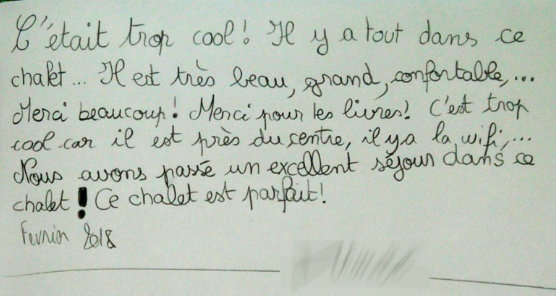 C'était trop cool ! Il y a tout dans ce
chalet... Il est très beau, grand, confortable,...
Merci beaucoup ! Merci pour les livres ! C'est trop
cool car il est près du centre, il y a la wifi,...
Nous avons passé un excellent séjour dans ce
chalet ! Ce chalet est parfait !
Fevrier 2018